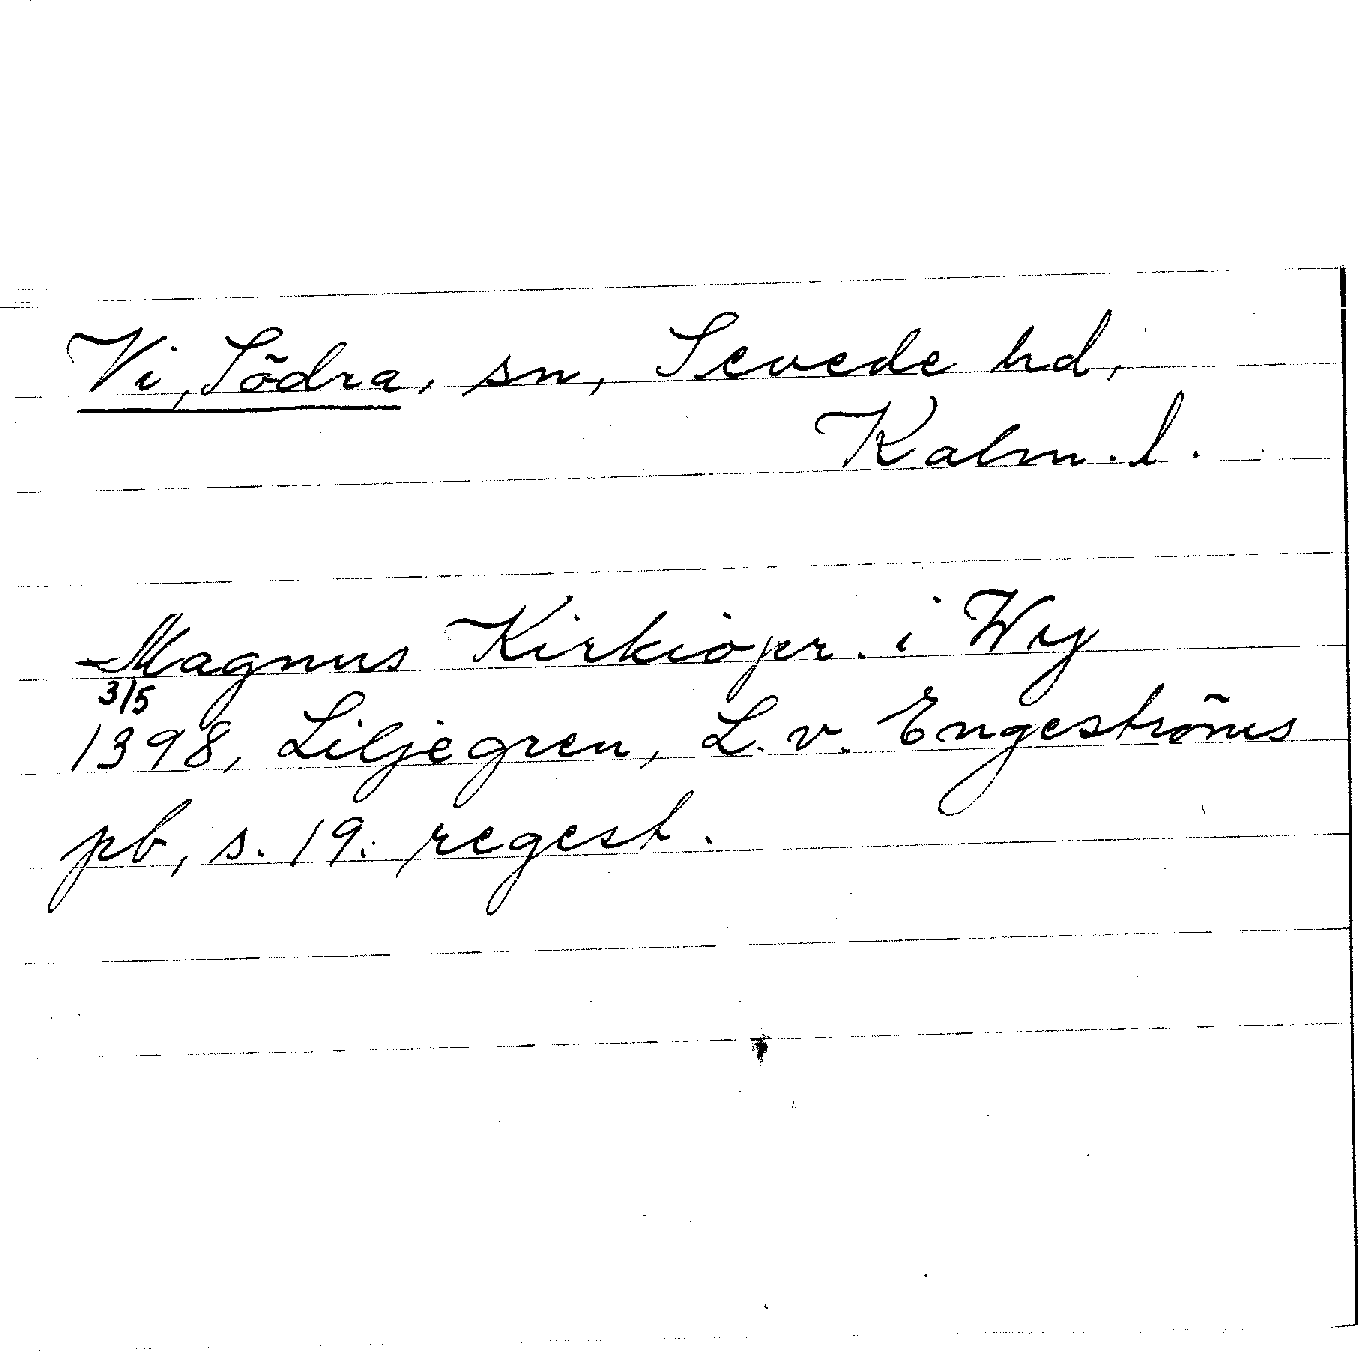 Vi, Södra, sn, Sevede hd,
Kalm. l.
Magnus Kirkiopr. i Wy
3/5
1398, Liljegren, L. v. Engeströms
pb, s. 19. regest.